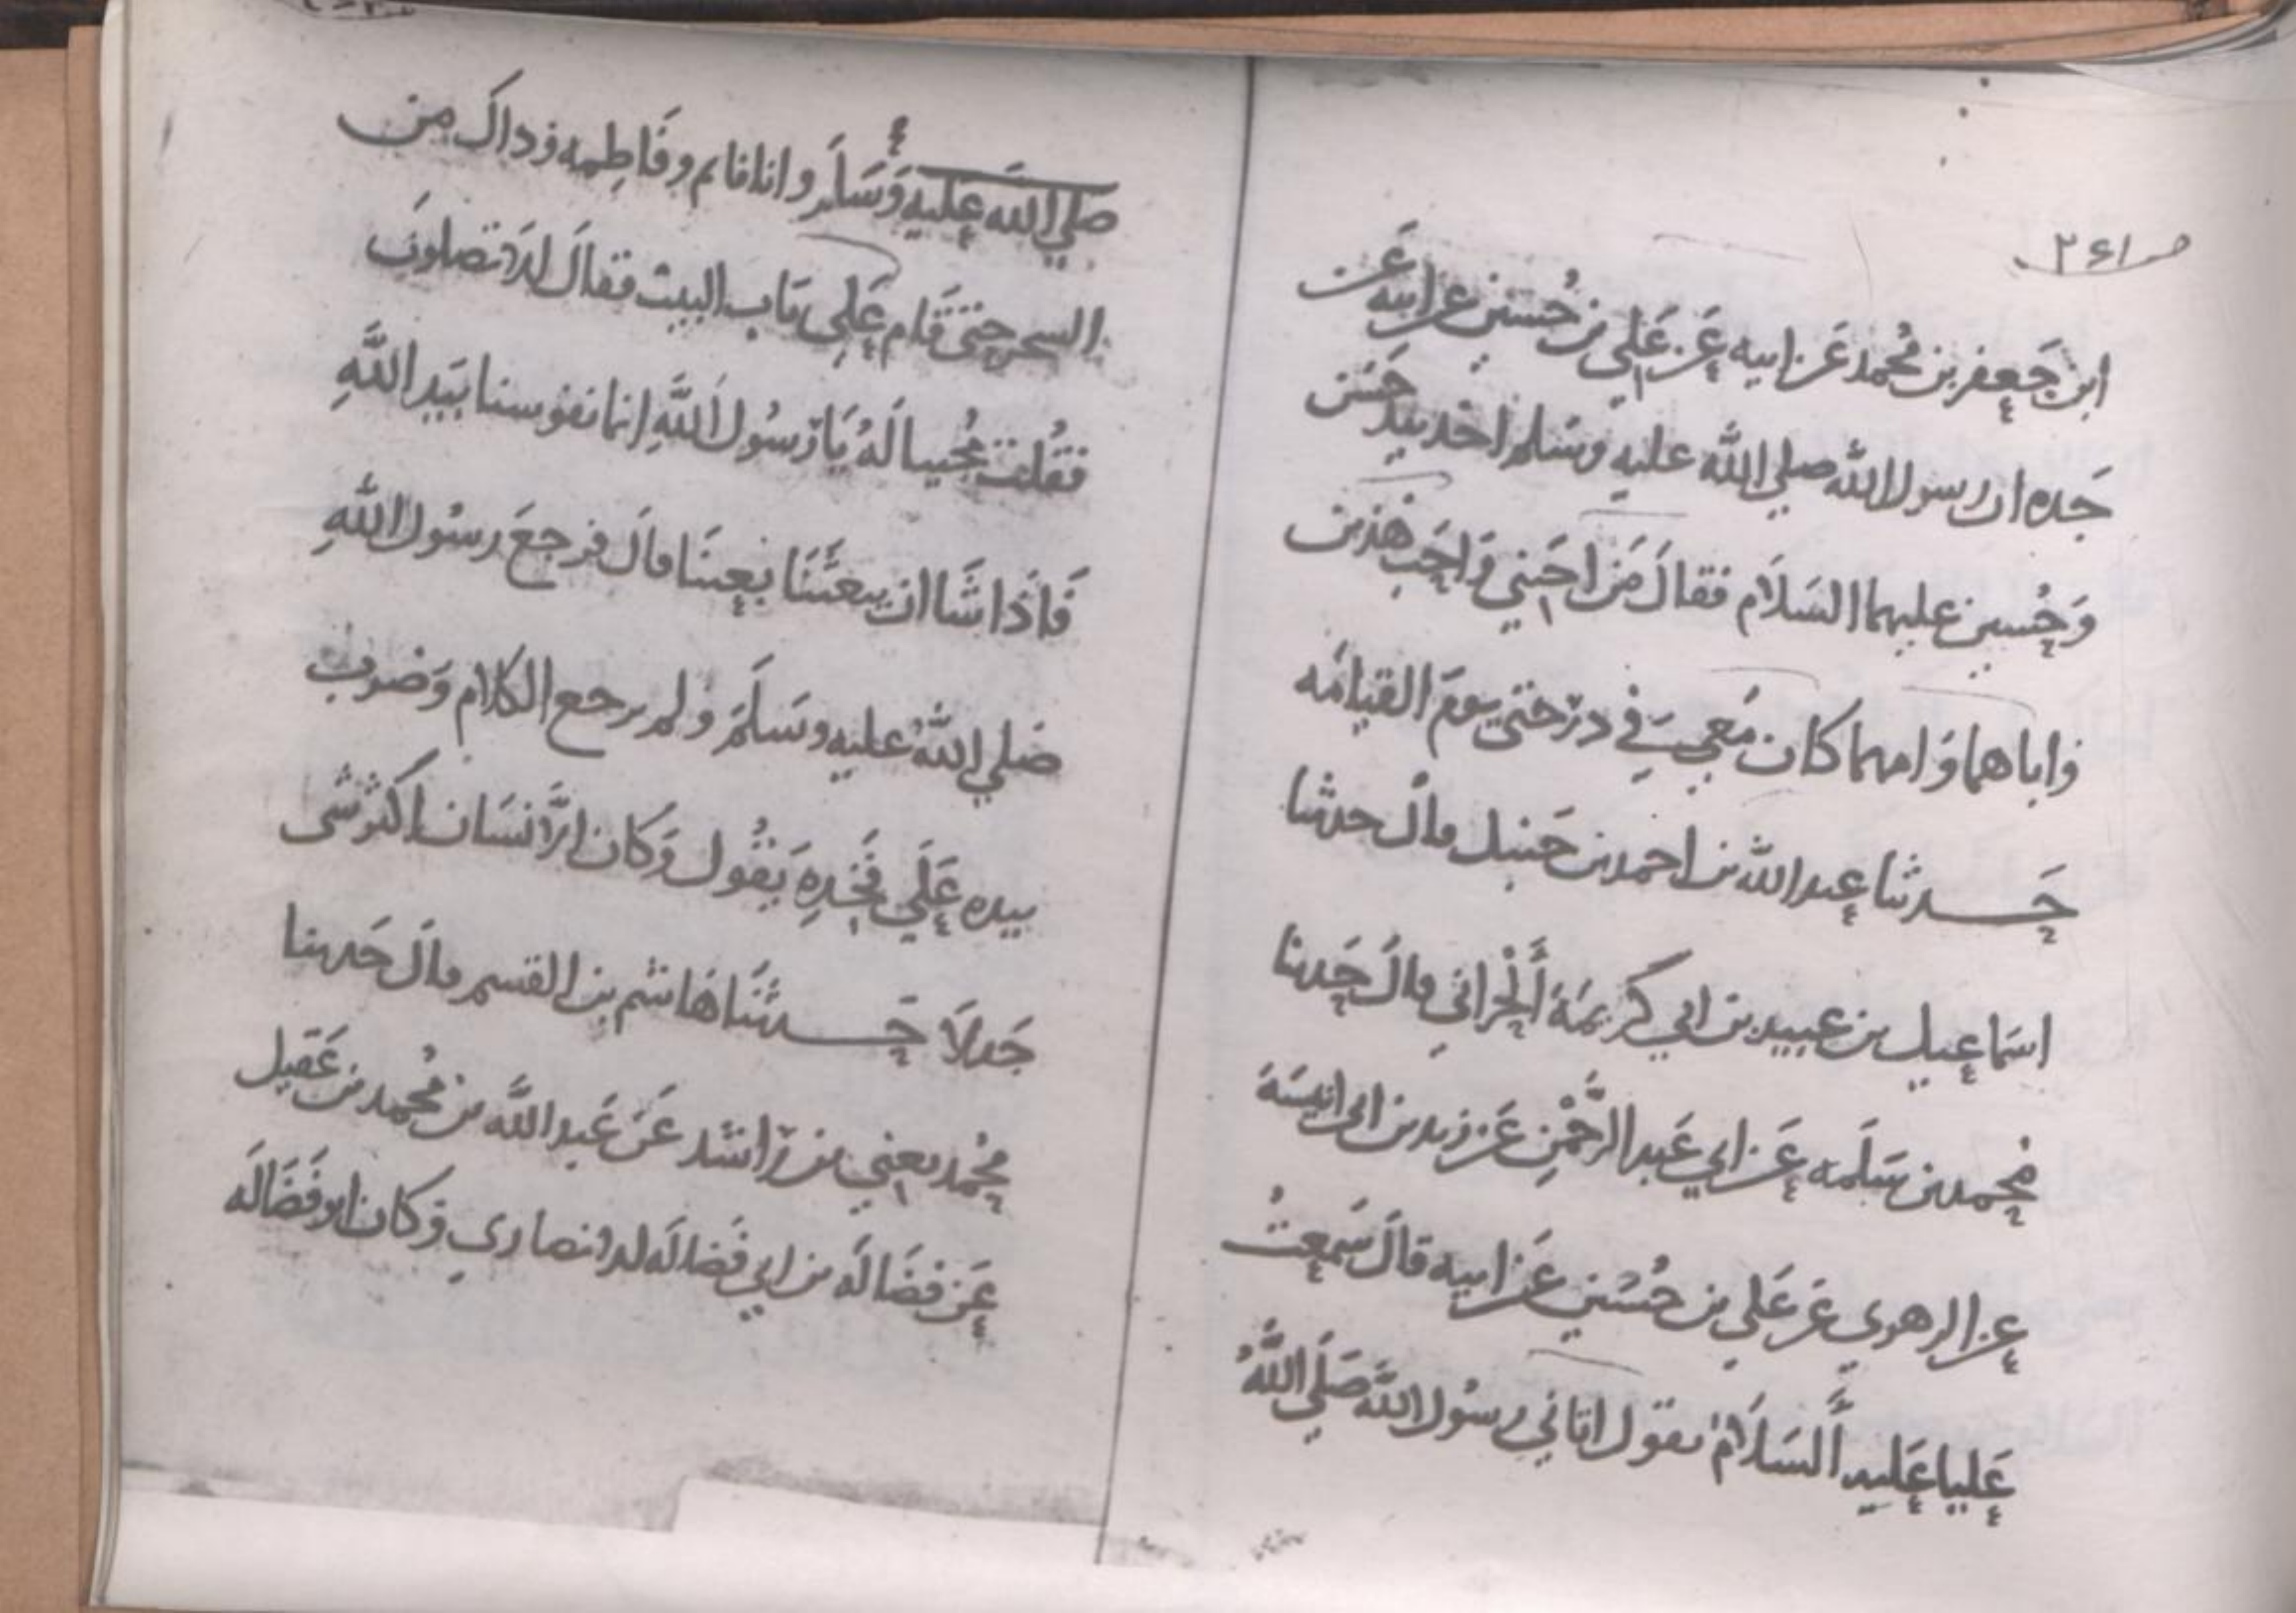 صـ ٢٤١
ابن جَعفر بن مُحمد عَن ابيه عَن عَلي بن حُسين عن ابيه عَن
جَده ان رسول الله صلي الله عليه وسَلم اخذ بيد حَسَن
وَحُسين عليهما السَلَام فقالَ مَن احَبني وَاحَب هذين
وَاباهما وَامهما كان مَعي في درَجتي يومَ القيامَه
حَدثنا عبد الله بن احمد بن حَنبل قالَ حدثنا
اسمَاعيل بن عبيد بن ابي كَريمَة اَلْحراني قالَ حَدثنا
مُحمد بن سَلَمه عَن ابي عَبد الرَّحْمنِ عَن زيد بن ابي انيسَة
عن الزهري عَن عَلي بن حُسَين عَن ابيه قالَ سَمِعتُ
عَليا عَليه اَلسَلَامُ يقول اتاني رسُول الله صَلَي اللَّهُ
صَلي اللَّه عَليهِ وَسَلَّم وانا نايم وفَاطِمه وَذاكَ مِن
السحر حتي قَام عَلَي بَاب البيت فقالَ اَلَا تصلونَ
فقُلت مُجيبا لَهُ يَا رَسُولَ اللَّهِ انما نفوسنا بيَد اللَّهِ
فَاذَا شَا ان يبعَثَنَا بعثنَا قالَ فرجعَ رسُول اللَّهِ
صَلي اللَّهُ عليه وسَلَّمَ ولم يرجع الكلام وَضربَ
بيده عَلَي فَخذِهِ يَقُول وَكان الاِنسَان اكثر شي
جَدلَا حَدثنَا هَاشم بن القسم قالَ حَدثنا
مُحمد يعني بن رَاشد عَن عَبد اللَّه بن مُحمد بن عَقيل
عَن فضَالَه بن ابي فَضالَه الانصاري وَكان ابو فَضَالَه